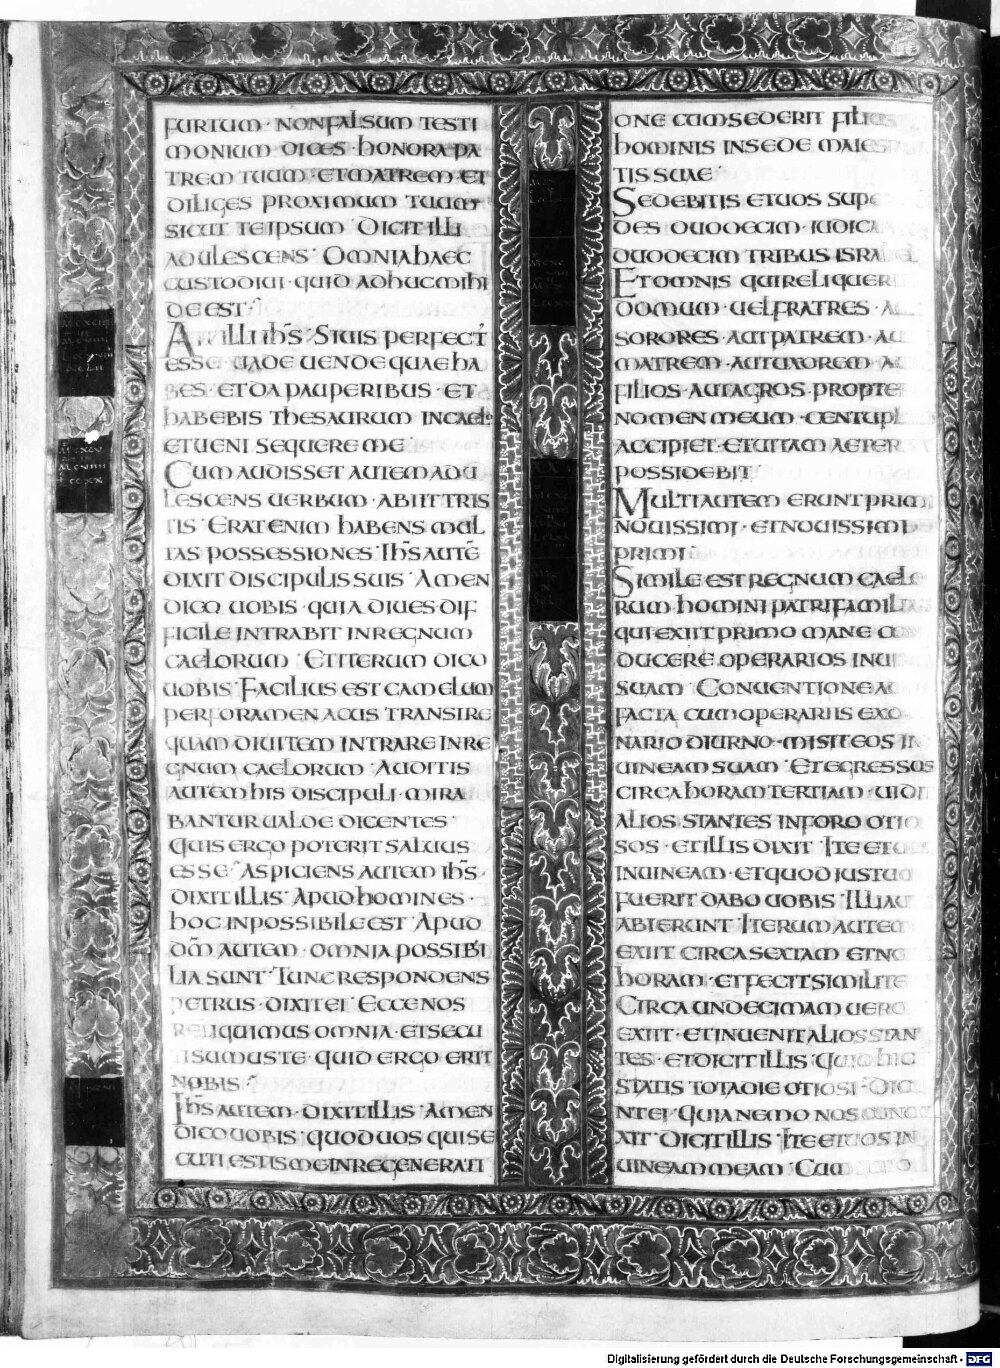 FURTUM · NON FALSUM TESTI
MONIUM DICES · HONORA PA
TREM TUUM · ET MATREM · ET
DILIGES PROXIMUM TUUM
SICUT TE IPSUM · DICIT ILLI
ADULESCENS · OMNIA HAEC
CUSTODIUI · QUID ADHUC MIHI
DE EST ·
AIT ILLI IHS · SI UIS PERFECT
ESSE · UADE UENDE QUAE HA
BES · ET DA PAUPERIBUS · ET
HABEBIS THESAURUM IN CAELO
ET UENI SEQUERE ME ·
CUM AUDISSET AUTEM ADU
LESCENS UERBUM · ABIIT TRIS
TIS · ERAT ENIM HABENS MUL
TAS POSSESSIONES · IHS AUTĒ
DIXIT DISCIPULIS SUIS · AMEN
DICO UOBIS · QUIA DIUES DIF
FICILE INTRABIT IN REGNUM
CAELORUM · ET ITERUM DICO
UOBIS · FACILIUS EST CAMELUM
PER FORAMEN ACUS TRANSIRE
QUAM DIUITEM INTRARE IN RE
GNUM CAELORUM · AUDITIS
AUTEM HIS DISCIPULI · MIRA
BANTUR UALDE DICENTES ·
QUIS ERGO POTERIT SALUUS
ESSE · ASPICIENS AUTEM IHS ·
DIXIT ILLIS · APUD HOMINES ·
HOC INPOSSIBILE EST · APUD
DM̄ AUTEM · OMNIA POSSIBI
LIA SUNT · TUNC RESPONDENS
PETRUS · DIXIT EI · ECCE NOS
RELIQUIMUS OMNIA · ET SECU
TI SUMUS TE · QUID ERGO ERIT
NOBIS ·
IHS AUTEM · DIXIT ILLIS · AMEN
DICO UOBIS · QUOD UOS QUI SE
CUTI ESTIS ME IN REGENERATI
ONE CUM SEDERIT FILIUS
HOMINIS IN SEDE MAIESTA
TIS SUAE ·
SEDEBITIS ET UOS SUPER
DES DUODECIM · IUDICA
DUODECIM TRIBUS ISRAHEL
ET OMNIS QUI RELIQUERI
DOMUM · UEL FRATRES · AU
SORORES · AUT PATREM · AU
MATREM · AUT UXOREM · AU
FILIOS · AUT AGROS · PROPTE
NOMEN MEUM · CENTUPL
ACCIPIET · ET UITAM AETER
POSSIDEBIT ·
MULTI AUTEM ERUNT PRIMI
NOUISSIMI · ET NOUISSIMI
PRIMI ·
SIMILE EST REGNUM CAELO
RUM · HOMINI PATRI FAMILIAS
QUI EXIIT PRIMO MANE CON
DUCERE OPERARIOS IN UI
SUAM · CONUENTIONE AU
FACTA CUM OPERARIIS EX DE
NARIO DIURNO · MISIT EOS IN
UINEAM SUAM · ET EGRESSUS
CIRCA HORAM TERTIAM · UIDIT
ALIOS STANTES IN FORO OTIO
SOS · ET ILLIS DIXIT · ITE ET UOS
IN UINEAM · ET QUOD IUSTUM
FUERIT DABO UOBIS · ILLI AUT
ABIERUNT · ITERUM AUTEM
EXIIT CIRCA SEXTAM ET NO
HORAM · ET FECIT SIMILITE
CIRCA UNDECIMAM UERO
EXIIT · ET INUENIT ALIOS STAN
TES · ET DICIT ILLIS · QUID HIC
STATIS TOTA DIE OTIOSI · DICU
NT EI · QUIA NEMO NOS CONDU
XIT · DICIT ILLIS · ITE ET UOS IN
UINEAM MEAM · CUM
Digitalisierung gefördert durch die Deutsche Forschungsgemeinschaft - DFG